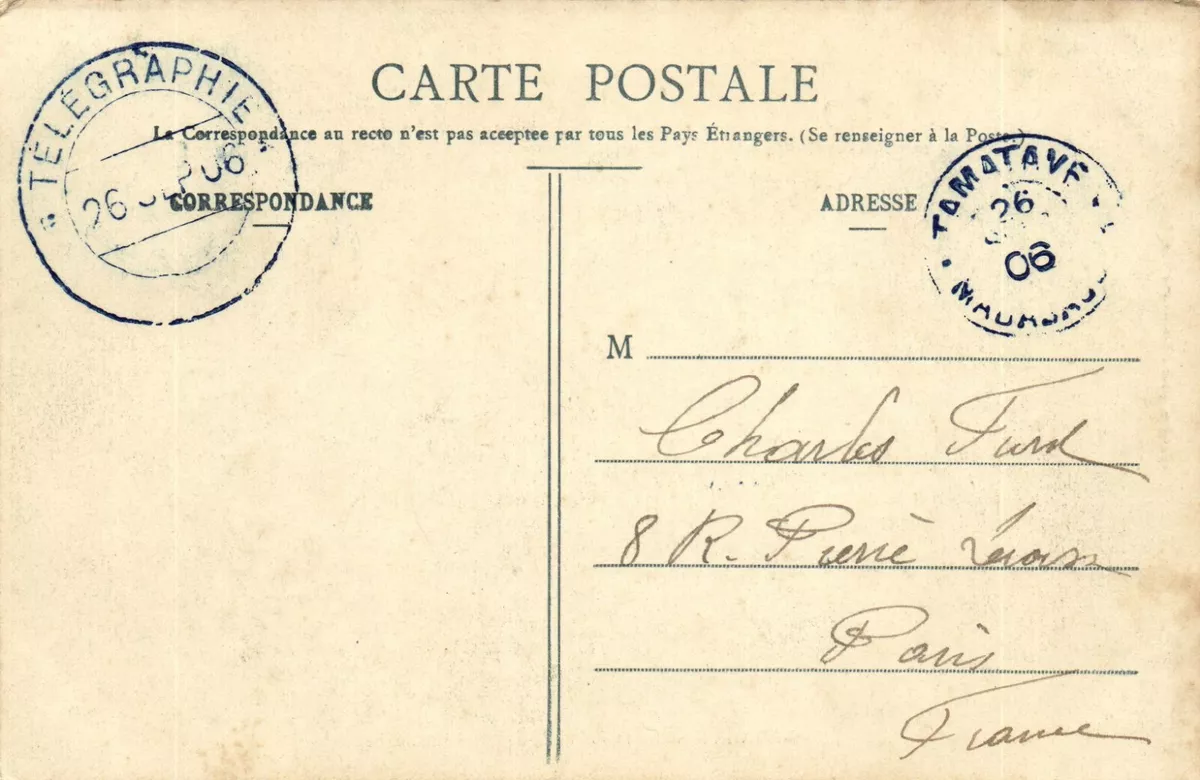 CARTE POSTALE
La Correspondance au recto n'est pas acceptee par tous les Pays Étrangers. (Se renseigner à la Poste.)
TÉLÉGRAPHIE
26 SEP 06
CORRESPONDANCE
ADRESSE
TAMATAVE
26
06
M
Charles
8 R. Pierre
Paris
France